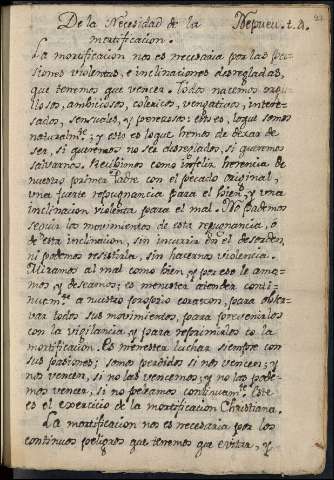 De la Necesidad de la Nepveu. t. 2.
mortificacion.
La mortificacion nos es necesaria por las pa-
siones violentas, e inclinaciones desregladas,
que tenemos que vencer. Todos nacemos orgu-
llosos, ambiciosos, colericos, vengativos, intere-
sados, sensuales, y perezosos: esto es, lo que somos
naturalmte; y esto es lo que hemos de dexar de
ser, si queremos no ser desreglados, si queremos
salvarnos. Recibimos como infeliz herencia de
nuestro primer Padre con el pecado original,
una fuerte repugnancia para el bien, y vna
inclinacion violenta para el mal. No podemos
seguir los movimientos de esta repugnancia, ò
de esta inclinacion, sin incurrir en el desorden,
ni podemos resistirla, sin hacernos violencia.
Miramos al mal como bien, y por eso le ama-
mos y deseamos; es menester atender conti-
nuamte a nuestro proprio corazon, para obser-
var todos sus movimientos, para prevenirlos
con la vigilancia, y para reprimirlos co la
mortificacion. Es menester luchar siempre con
sus pasiones; somos perdidos si nos vencen; y
nos vencen, si no las vencemos; y no las pode-
mos vencer, si no peleamos continuamte. Este
es el exercicio de la mortificacion Christiana.
La mortificacion nos es necesaria por los
continuos peligros que tenemos que evitar, y